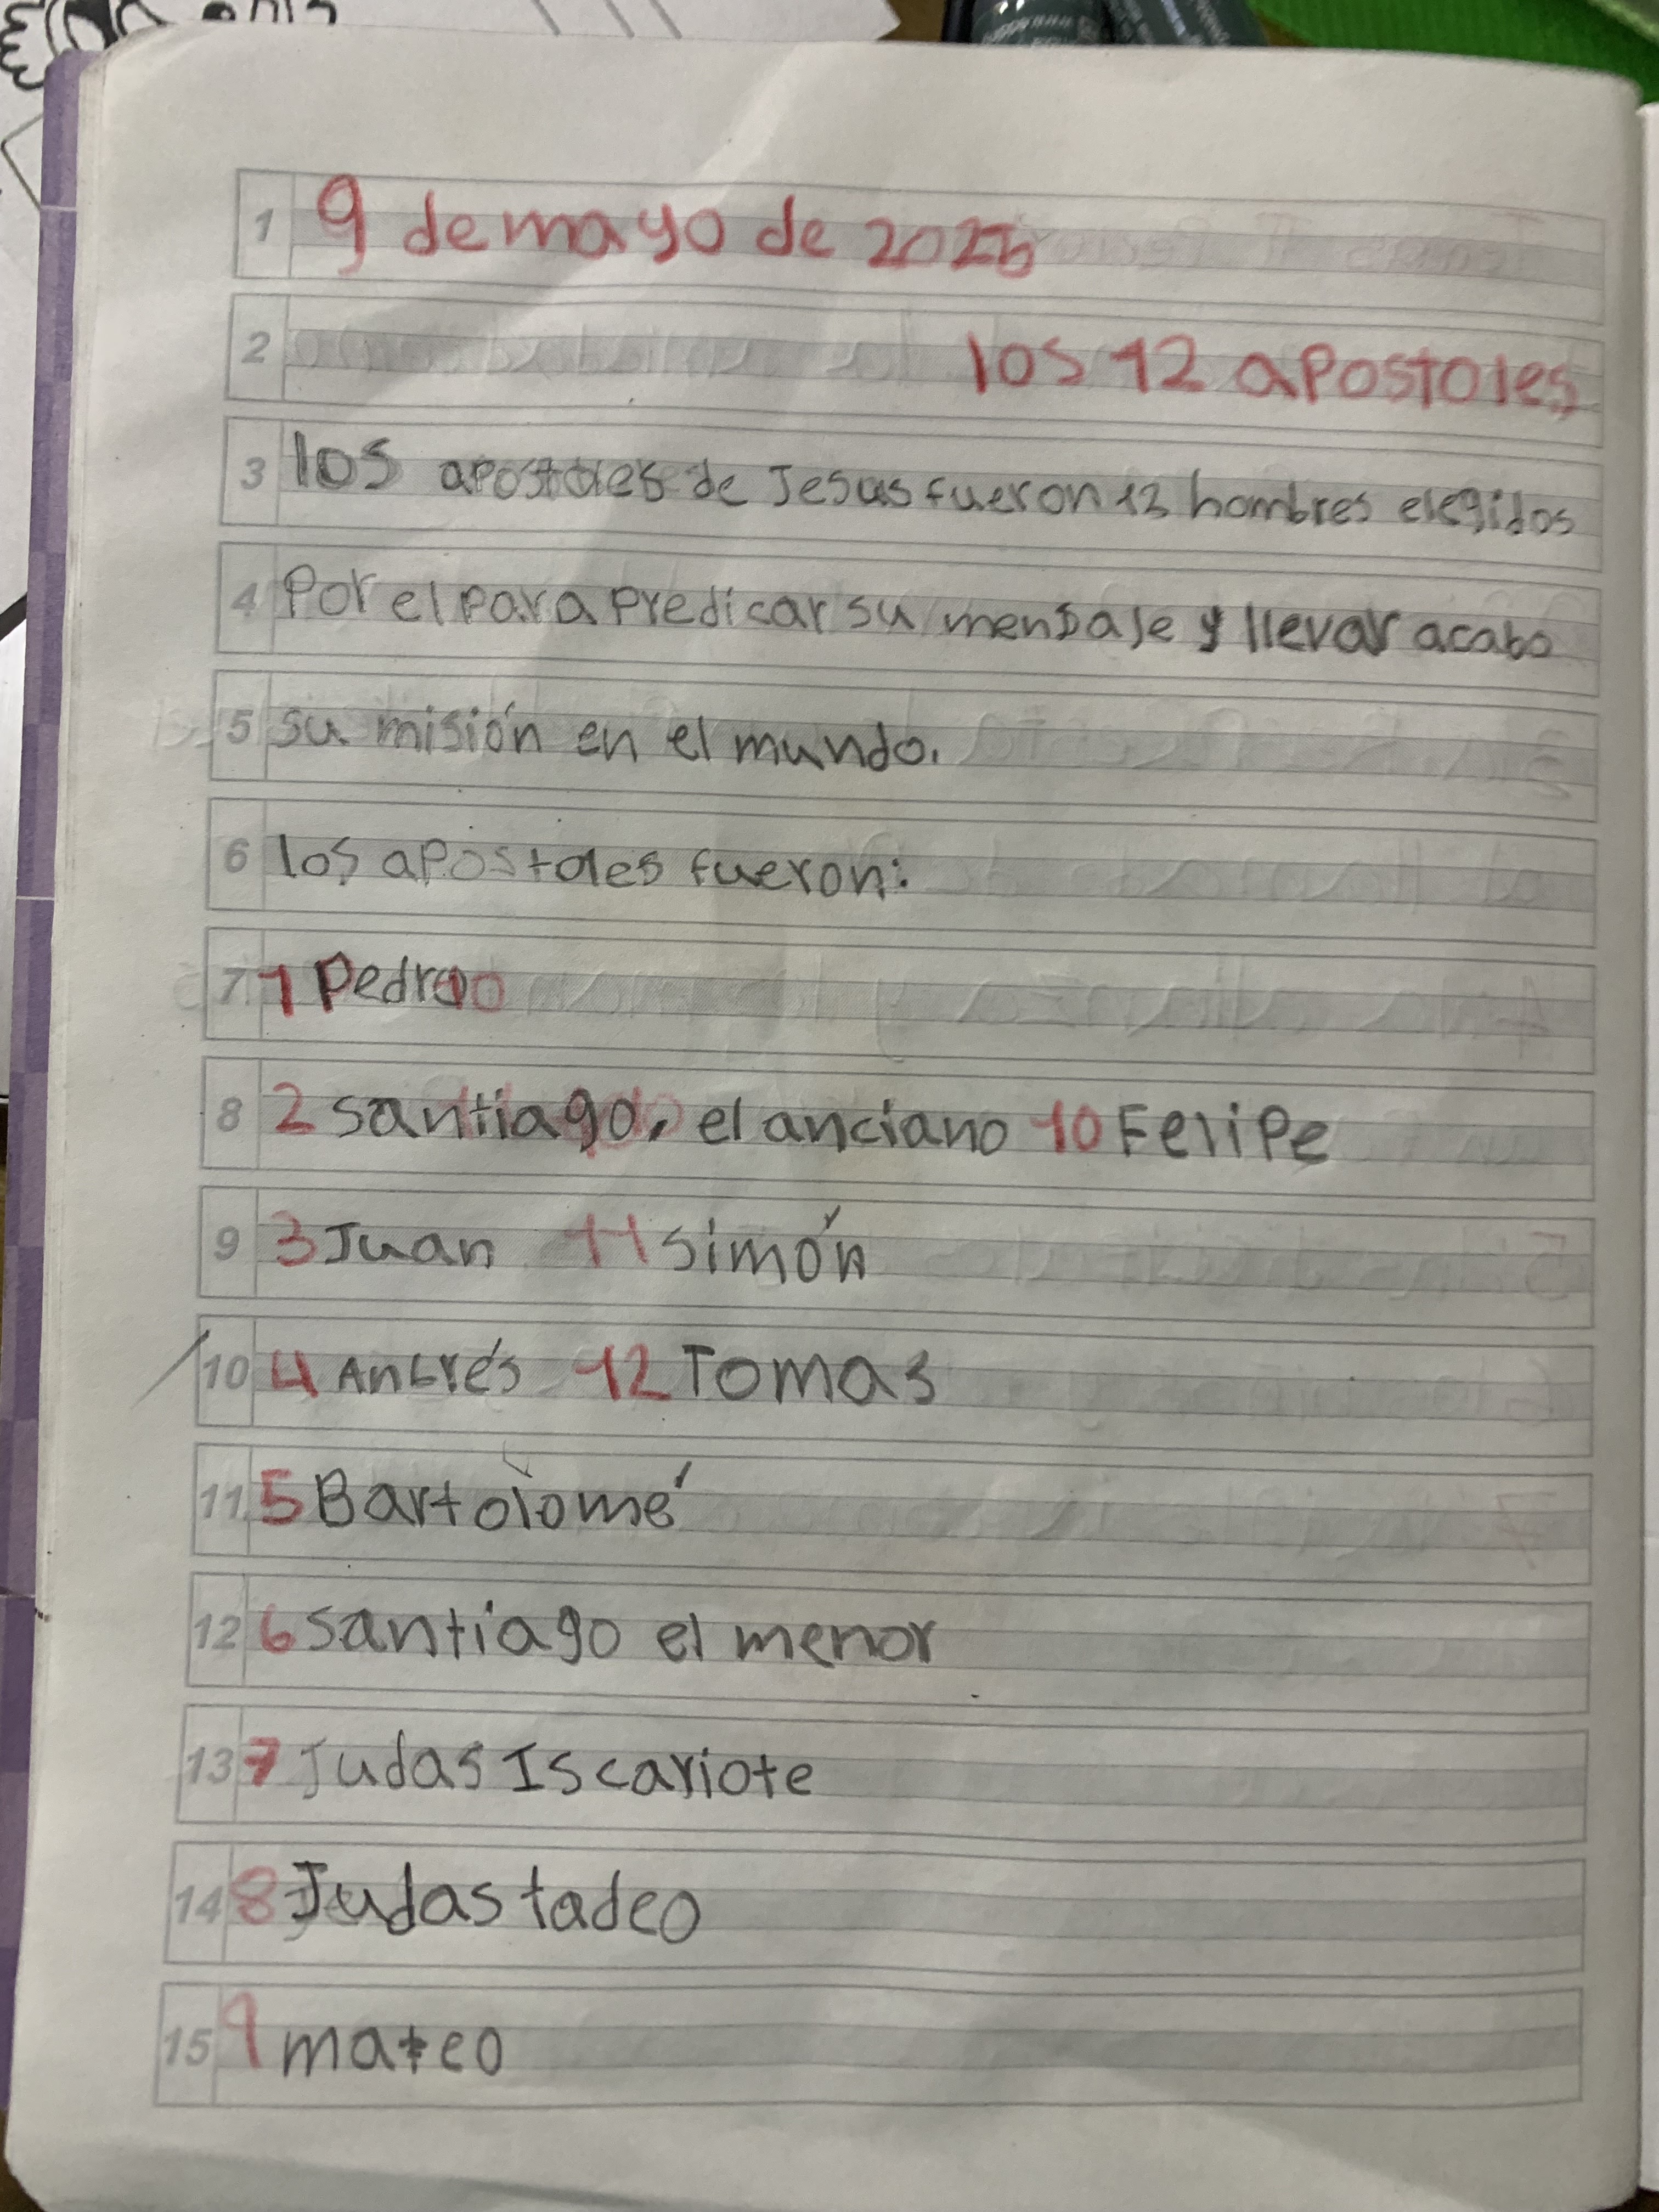 1 9 de mayo de 2025
2 los 12 apostoles
3 los apostoles de Jesus fueron 12 hombres elegidos
4 Por el para predicar su mensaje y llevar acabo
5 su misión en el mundo.
6 los apostoles fueron:
7 1 Pedro
8 2 santiago, el anciano 10 Felipe
9 3 Juan 11 simón
10 4 Andrés 12 Tomas
11 5 Bartolomé
12 6 santiago el menor
13 7 Judas Iscariote
14 8 Judas tadeo
15 9 mateo